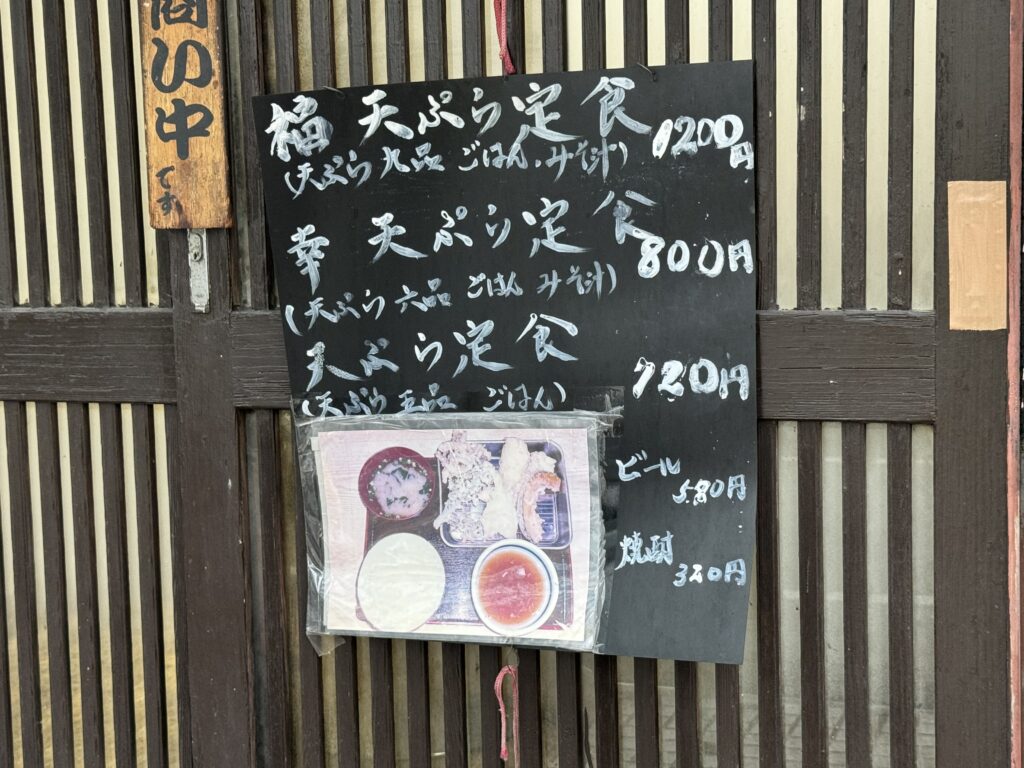 商い中
です
福 天ぷら定食 1200円
(天ぷら九品 ごはん.みそ汁)
幸 天ぷら定食 800円
(天ぷら 六品 ごはん みそ汁)
天ぷら定食 720円
(天ぷら 五品 ごはん)
ビール
580円
焼酎
320円